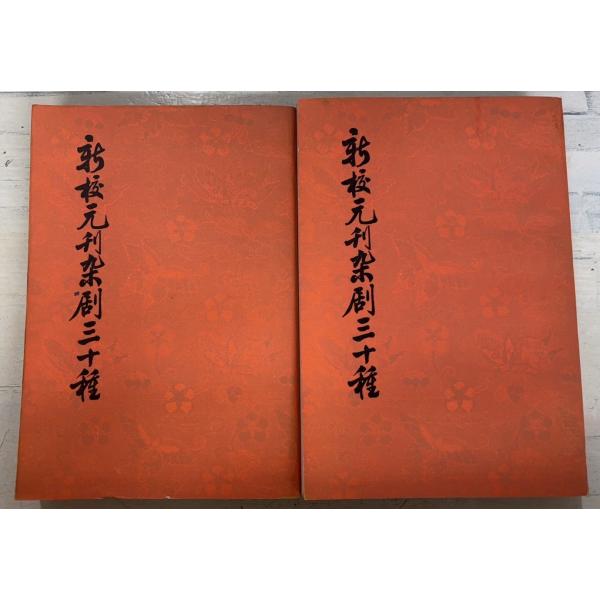 新校元刊杂剧三十種
新校元刊杂剧三十種